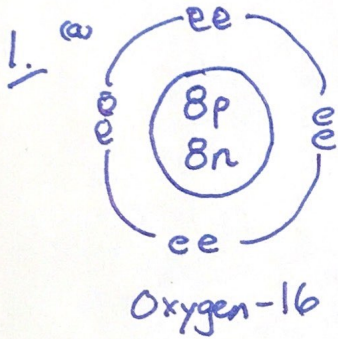 1. (a)
ee
8p
8n
e
e
e
e
ee
Oxygen-16